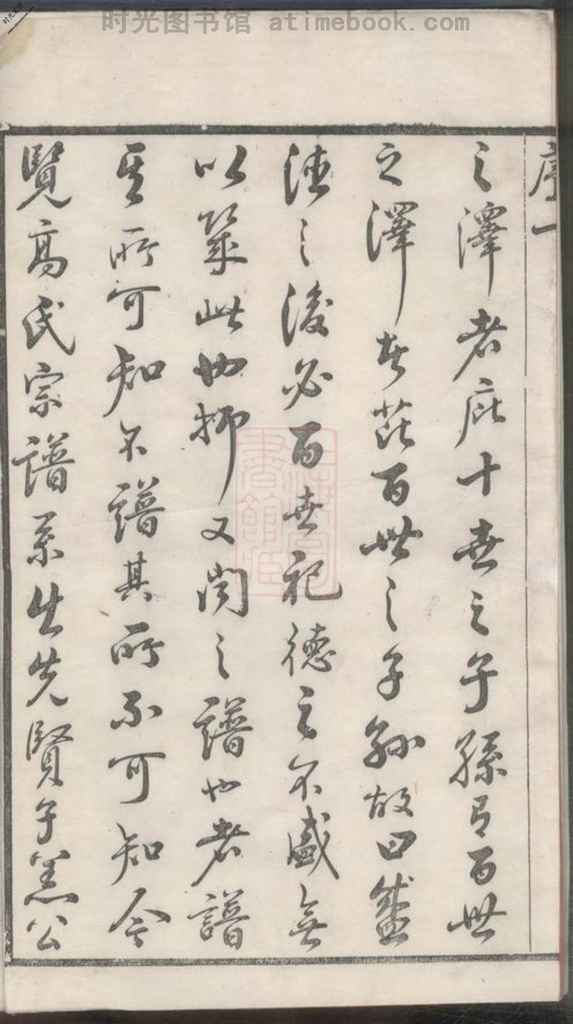 时光图书馆 atimebook.com
序一
之澤者庇十世之子孫有百世
之澤者庇百世之子孫故曰盛
德之後必百世祀德之不盛無
以此也抑又聞之譜也者譜
其所可知不譜其所不可知今
覽高氏宗譜系出先賢子羔公